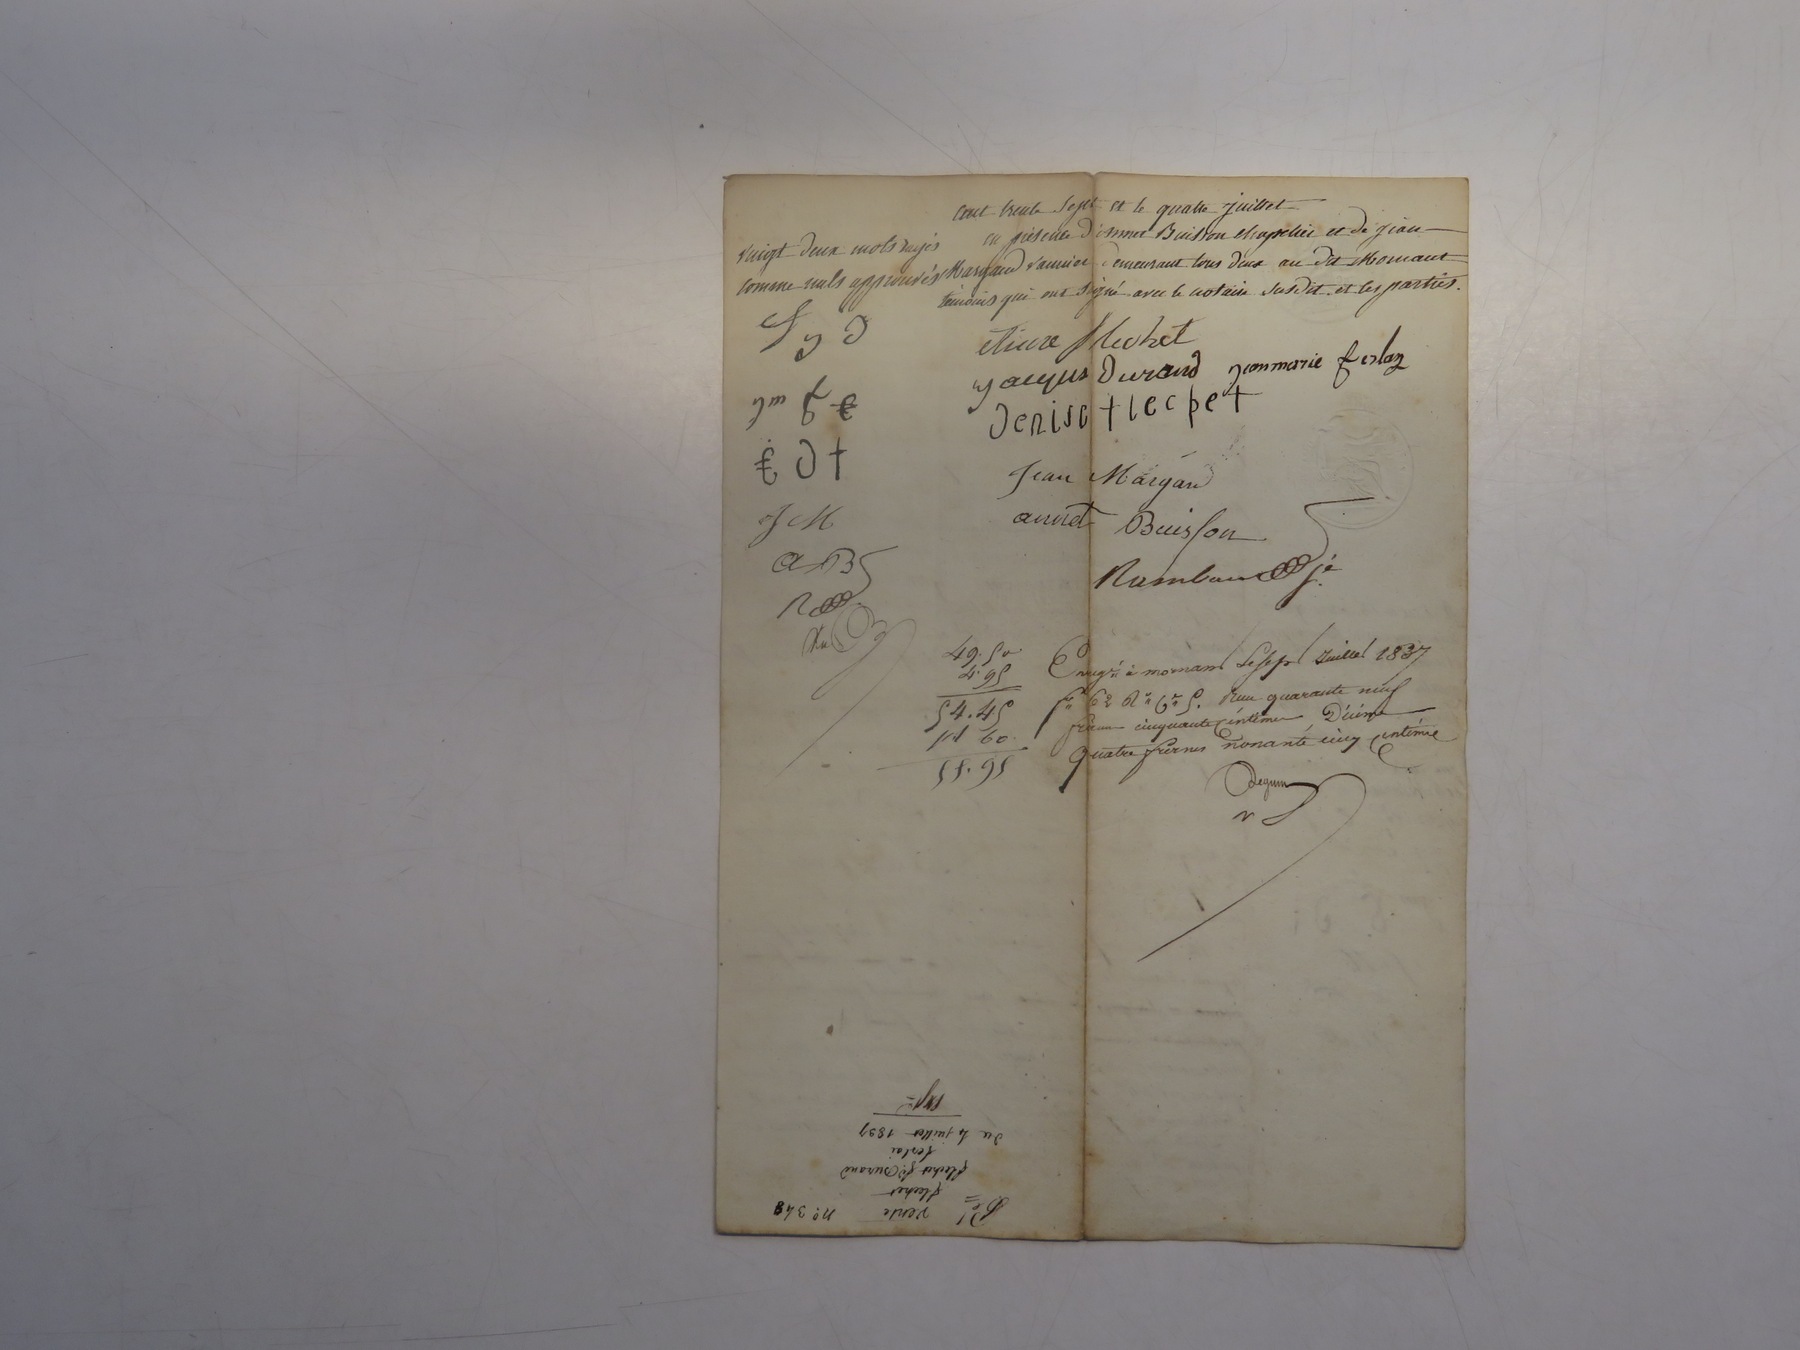 cent trente sept et le quatre juillet
en presence d'annet Buisson chapelier et de jean
Margand vannier demeurant tous deux au dit Mornant
témoins qui ont signé avec le notaire susdit et les parties.
vingt deux mots rayés
comme nuls approuvés
etiene flechet
jacques Durand jeanmarie ferlay
Denise flechet
Jean Margand
annet Buisson
Rambaud
J D
jm f
D f
J M
a B
R
Enregré à mornant le sept Juillet 1837
Reçu quarante neuf
francs cinquante centimes, Décime
quatre francs nonante cinq centimes
Deguin
49.50
4.95
54.45
56.55
Del
vente nº 348
flechet
flechet f. Durand
ferlai
du 4 juillet 1837
expe